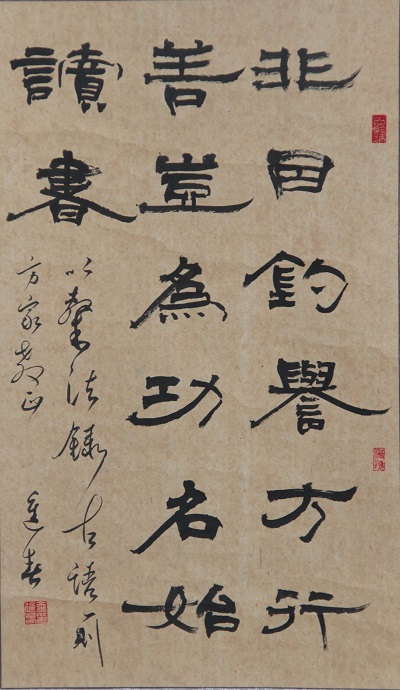 非因釣譽方行
善豈為功名始
讀書
以隸法錄古語一則
方家教正